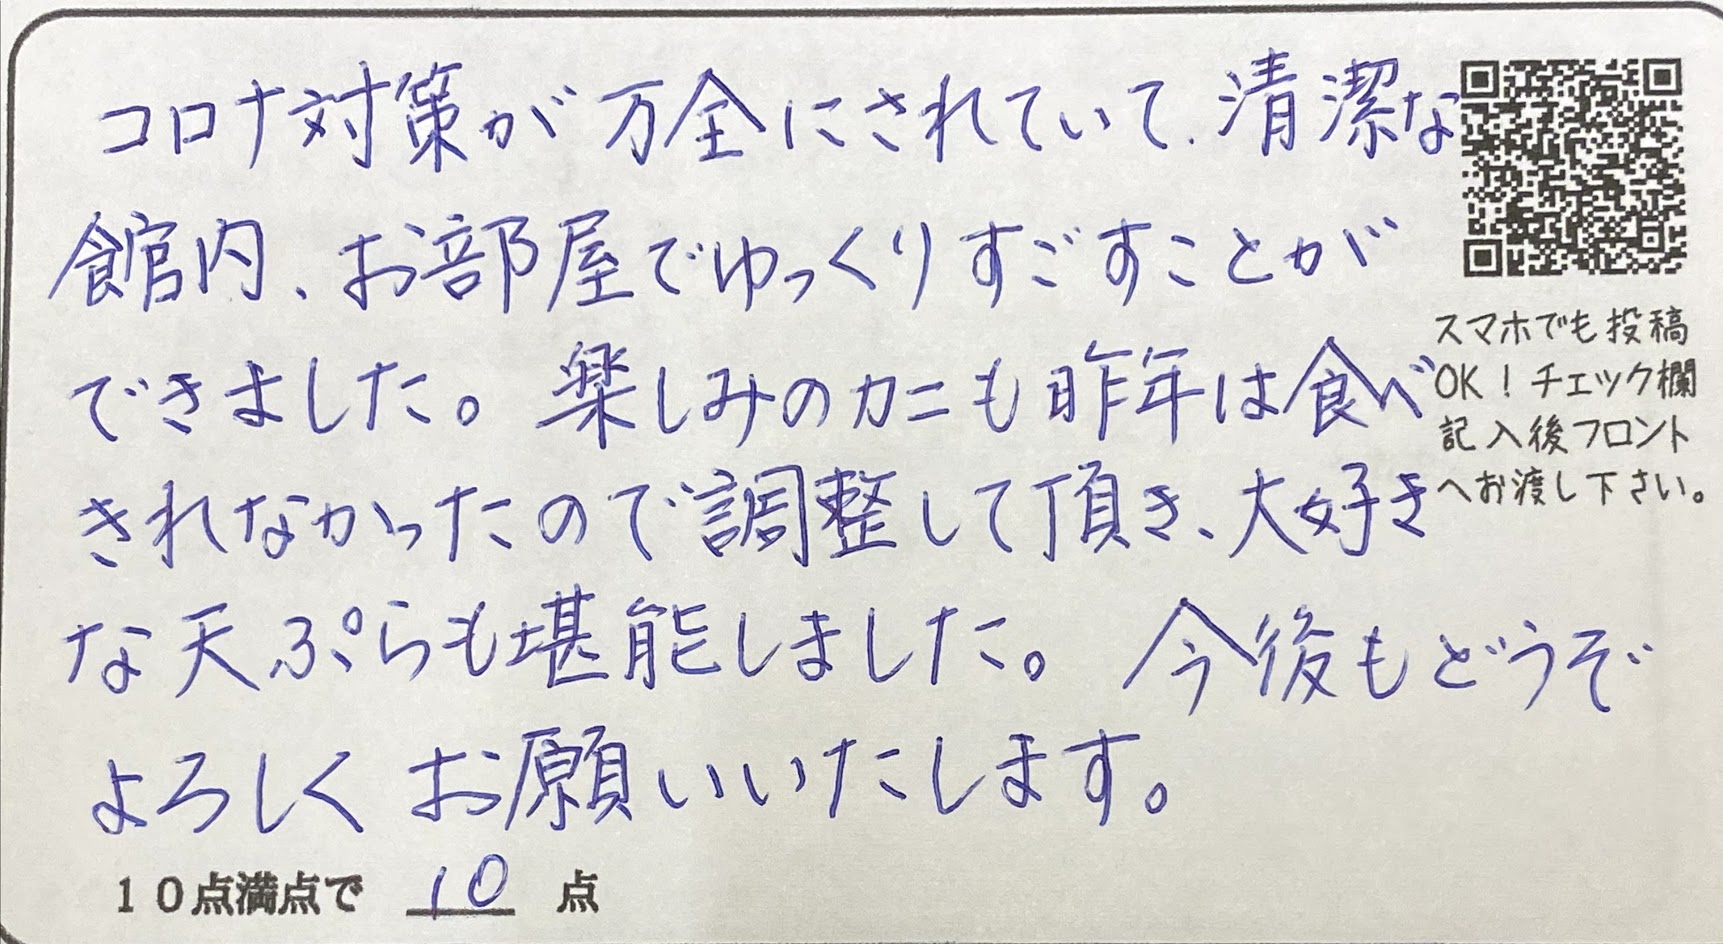 コロナ対策が万全にされていて、清潔な
館内、お部屋でゆっくりすごすことが
できました。楽しみのカニも昨年は食べ
きれなかったので調整して頂き、大好き
な天ぷらも堪能しました。今後もどうぞ
よろしくお願いいたします。
スマホでも投稿
OK！チェック欄
記入後フロント
へお渡し下さい。
10点満点で 10 点